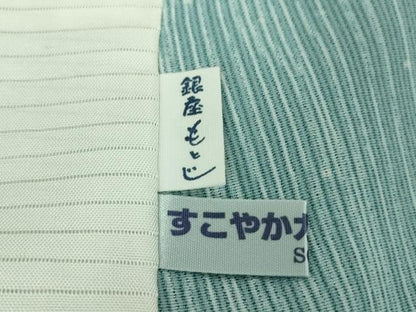 銀座もとじ
すこやかオ
S